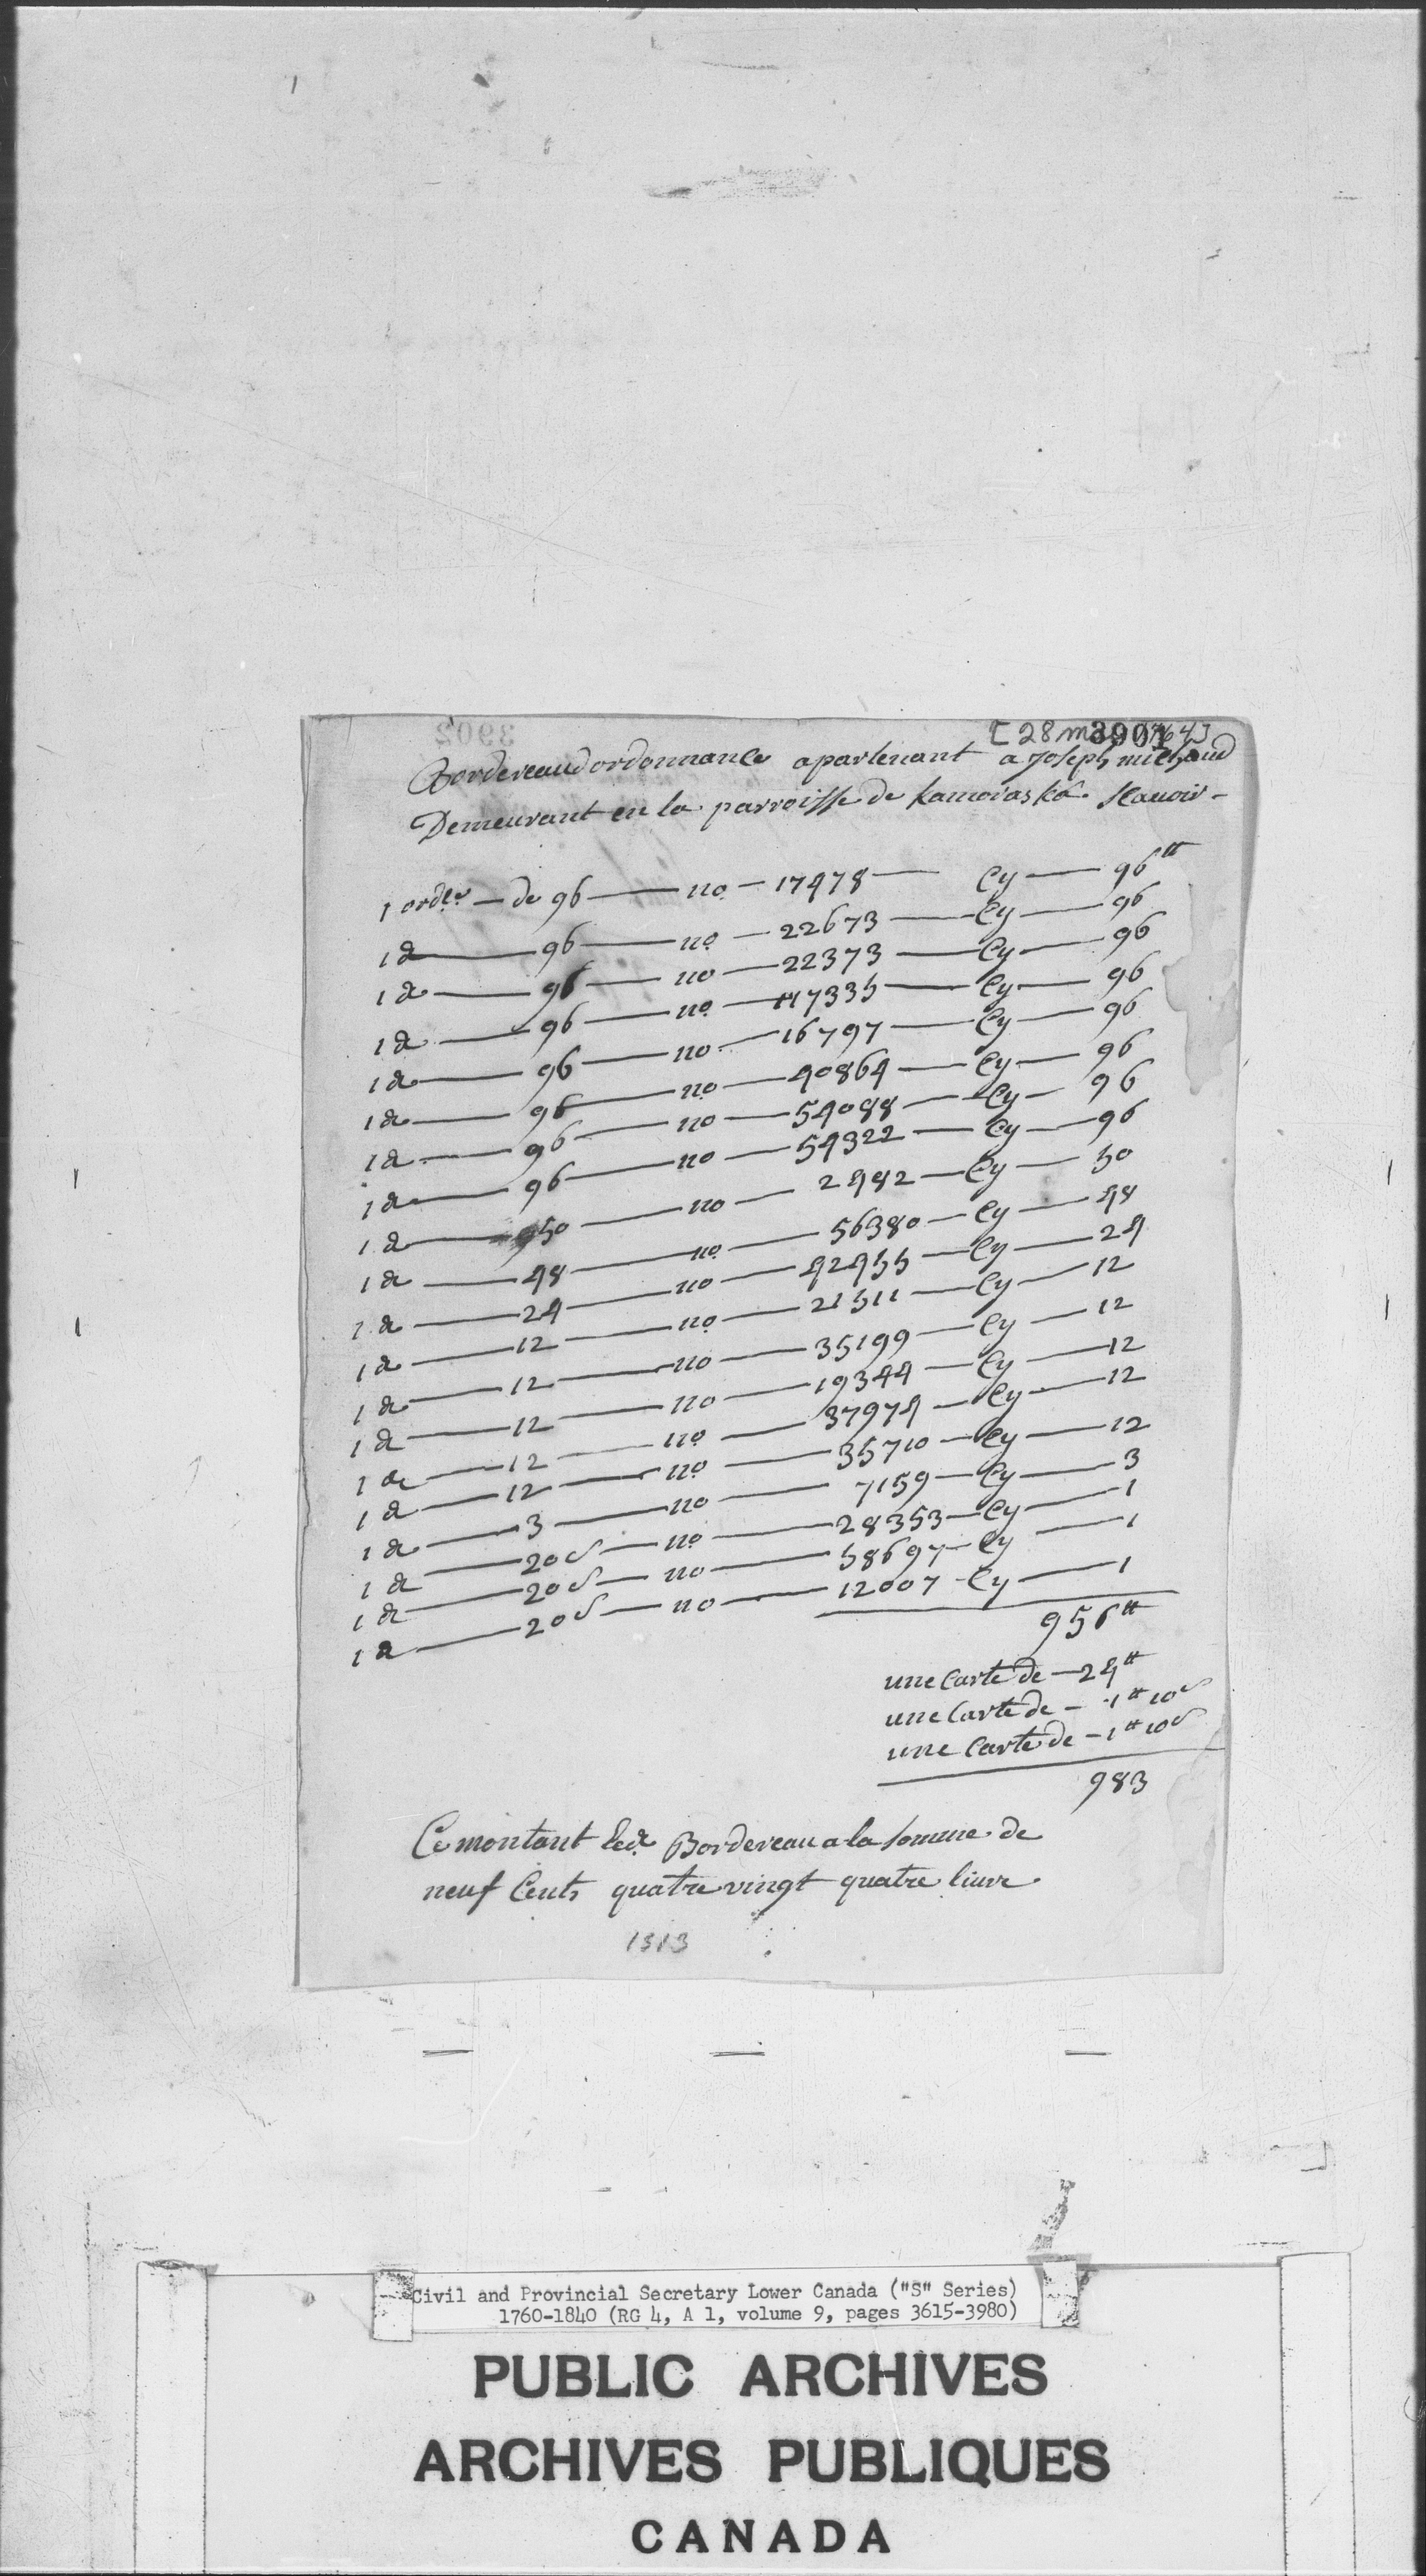 [28 mai 1764]
3901
Bordereau d ordonnance apartenant a Joseph michaud
Demeurant en la parroisse de kamoraska. Scauoir -
1 ordce — de 96 — no — 17478 — Cy — 96tt
1 d — 96 — no — 22673 — Cy — 96
1 d — 96 — no — 22373 — Cy — 96
1 d — 96 — no — 17335 — Cy — 96
1 d — 96 — no — 16797 — Cy — 96
1 d — 96 — no — 40864 — Cy — 96
1 d — 96 — no — 54088 — Cy — 96
1 d — 96 — no — 54322 — Cy — 96
1 d — 50 — no — 2482 — Cy — 50
1 d — 48 — no — 56380 — Cy — 48
1 d — 24 — no — 42455 — Cy — 24
1 d — 12 — no — 21511 — Cy — 12
1 d — 12 — no — 35199 — Cy — 12
1 d — 12 — no — 19344 — Cy — 12
1 d — 12 — no — 37974 — Cy — 12
1 d — 12 — no — 35710 — Cy — 12
1 d — 3 — no — 7159 — Cy — 3
1 d — 20s — no — 28353 — Cy — 1
1 d — 20s — no — 58697 — Cy — 1
1 d — 20s — no — 12007 - Cy — 1
956tt
une Carte de — 24tt
une Carte de — 1tt 10s
une Carte de — 1tt 10s
983
Ce montant led. Bordereau a la somme de
neuf Cents quatre vingt quatre liure.
1313
Civil and Provincial Secretary Lower Canada ("S" Series)
1760-1840 (RG 4, A 1, volume 9, pages 3615-3980)
PUBLIC ARCHIVES
ARCHIVES PUBLIQUES
CANADA